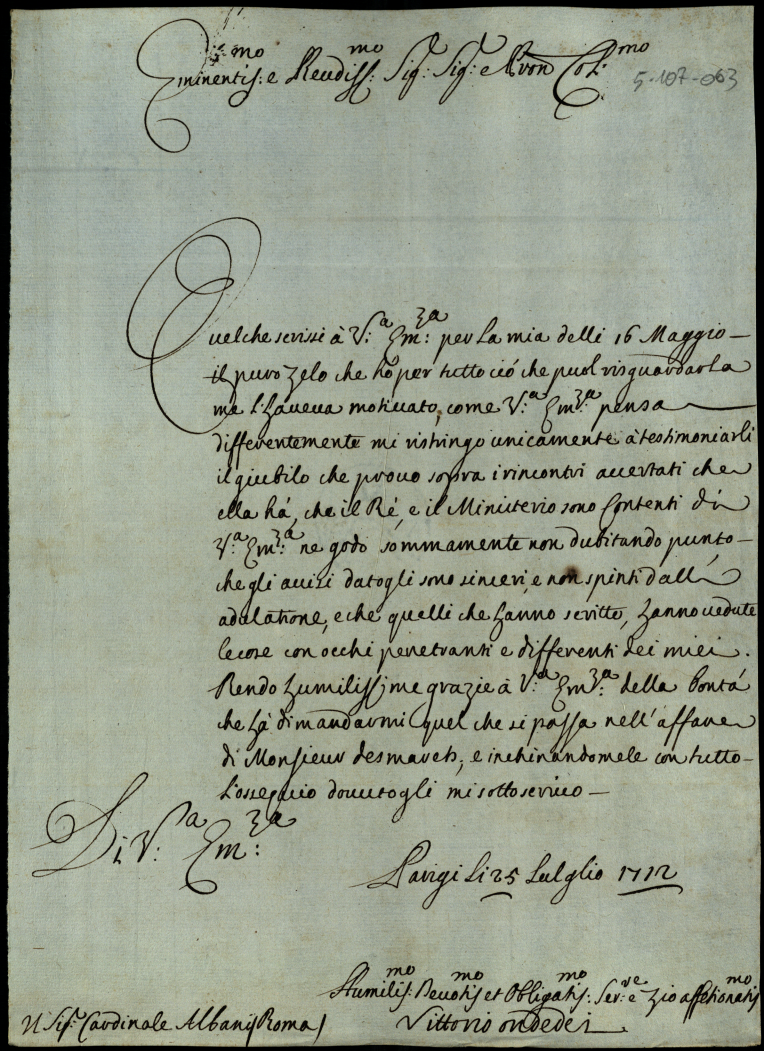 Eminentis:mo e Reudiss:mo Sig: Sig: e Pron Col:mo
5-107-063
Quel che scrissi à V:a Em:za per la mia delli 16 Maggio —
il puro zelo che hò per tutto ciò che puol risguardarla
me l'haueua motiuato, come V:a Em:za pensa
differentemente mi ristringo unicamente à testimoniarli
il giubilo che prouo sopra i rincontri accertati che
ella há, che il Ré, e il Ministerio sono Contenti di
V:a Em:za ne godo sommamente non dubitando punto —
che gli auisi datogli sono sinceri, e non spinti dall'
adulatione, e che quelli che hanno scritto, hanno uedute
le cose con occhi penetranti e differenti dei miei.
Rendo humilissime grazie à V:a Em:za della bontá
che hà di mandarmi quel che si passa nell'affare
di Monsieur desmarets, e inchinandomele con tutto —
l'ossequio douutogli mi sottoscriuo —
Di V:a Em:za
Parigi li 25 Lulglio 1712
Humilis:mo Deuotis:mo et Obligatis:mo Ser:re e Zio affetionatis:mo
Il Sig: Cardinale Albani (Roma)
Vittorio ondedei